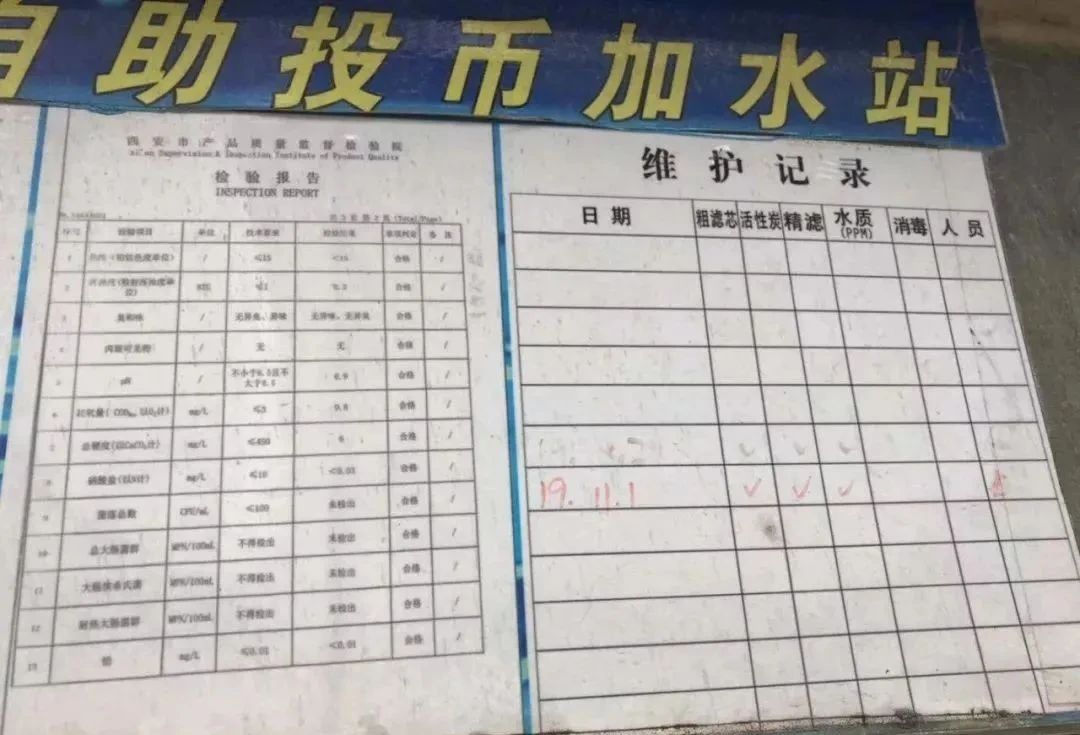 自助投币加水站
西安市产品质量监督检验院
Xi'an Supervision & Inspection Institute of Product Quality
检验报告
INSPECTION REPORT
共3页第2页(Total/Page)
序号 检验项目 单位 技术要求 检验结果 单项判定 备注
1 色度(铂钴色度单位) / ≤15 <15 合格 /
2 浑浊度(散射浑浊度单位) NTU ≤1 0.3 合格 /
3 臭和味 / 无异臭、异味 无异味、无异臭 合格 /
4 肉眼可见物 / 无 无 合格 /
5 pH / 不小于6.5且不大于8.5 6.9 合格 /
6 耗氧量( CODMn, 以O2计) mg/L ≤3 0.8 合格 /
7 总硬度(以CaCO3计) mg/L ≤450 6 合格 /
8 硝酸盐(以N计) mg/L ≤10 <0.03 合格 /
9 菌落总数 CFU/mL ≤100 未检出 合格 /
10 总大肠菌群 MPN/100mL 不得检出 未检出 合格 /
11 大肠埃希氏菌 MPN/100mL 不得检出 未检出 合格 /
12 耐热大肠菌群 MPN/100mL 不得检出 未检出 合格 /
13 铅 mg/L ≤0.01 <0.01 合格 /
维护记录
日期 粗滤芯 活性炭 精滤 水质(PPM) 消毒 人员
✓ ✓ ✓
19. 11.1 ✓ ✓ ✓